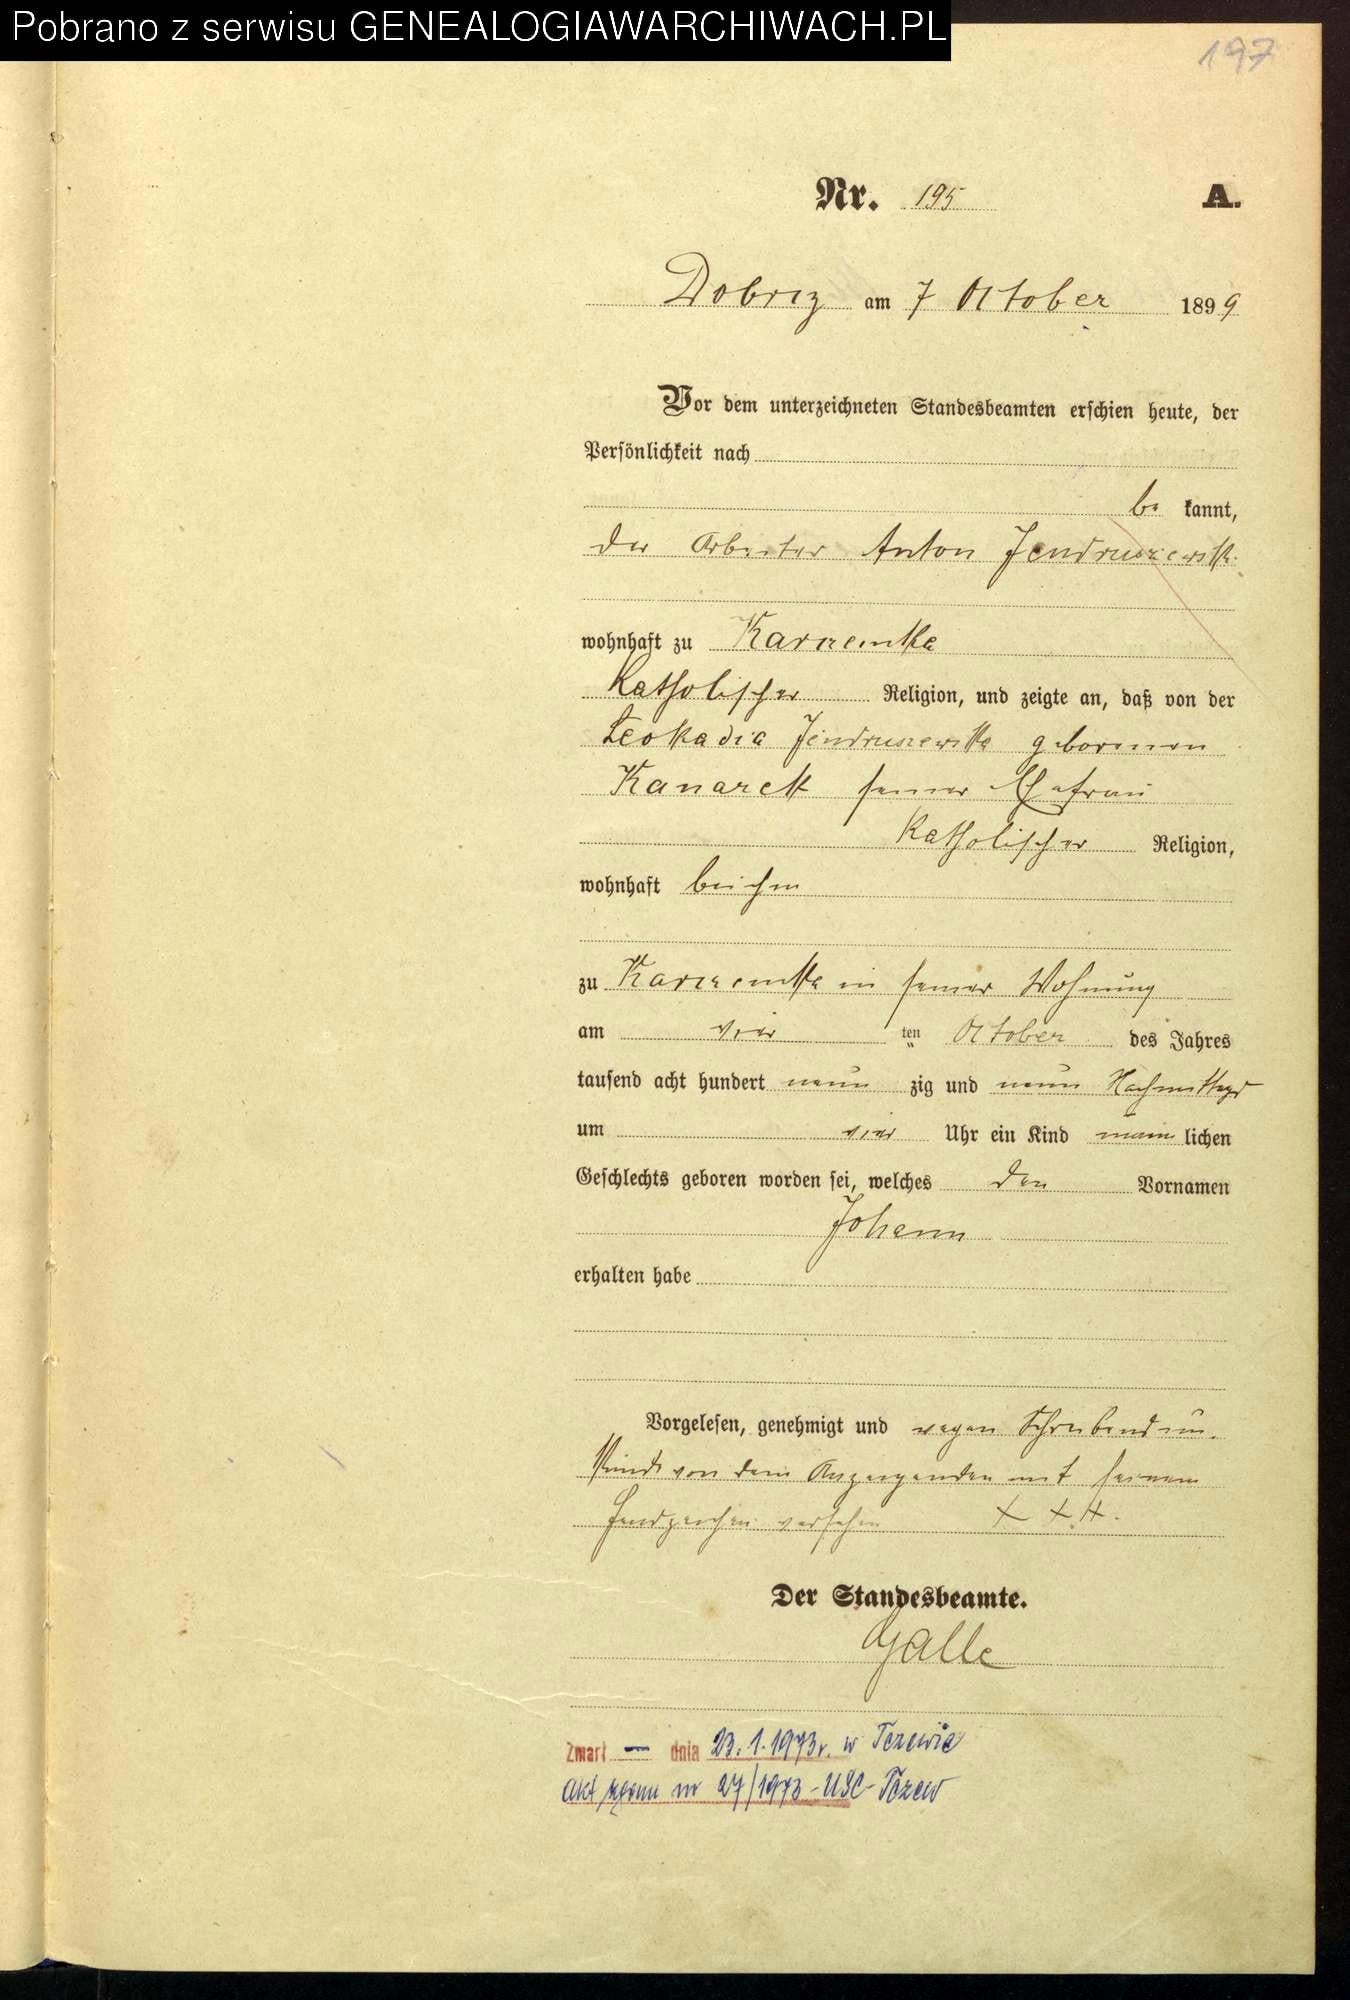 Pobrano z serwisu GENEALOGIAWARCHIWACH.PL
197
Nr. 195 A.
Dobrcz am 7 October 1899
Vor dem unterzeichneten Standesbeamten erschien heute, der
Persönlichkeit nach
be kannt,
der Arbeiter Anton Jendruszewski
wohnhaft zu Karczemka
Katholischer Religion, und zeigte an, daß von der
Leokadia Jendruszewska geborenen
Kanarek seiner Ehefrau
Katholischer Religion,
wohnhaft bei ihm
zu Karczemka in seiner Wohnung
am vier ten October des Jahres
tausend acht hundert neun zig und neun Nachmittags
um vier Uhr ein Kind männ lichen
Geschlechts geboren worden sei, welches den Vornamen
Johann
erhalten habe
Vorgelesen, genehmigt und wegen Schreibensun-
kunde von dem Anzeigenden mit seinem
Handzeichen versehen + + +.
Der Standesbeamte.
Galle
Zmarł — dnia 23.1.1973r. w Tczewie
akt zgonu nr 27/1973 - USC - Tczew